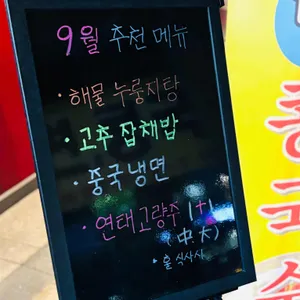 9월 추천 메뉴
· 해물 누룽지탕
· 고추잡채밥
· 중국냉면
· 연태고량주 1+1
(中, 大)
· 홀 식사시
홍
고